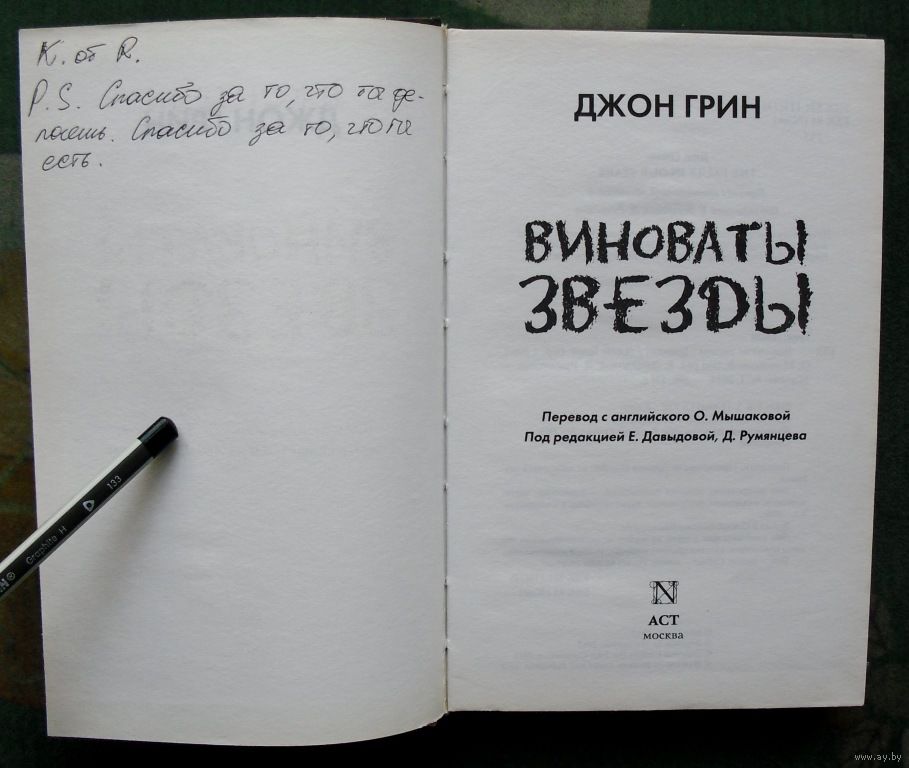 К. от R.
P.S. Спасибо за то, что ты де-
лаешь. Спасибо за то, что ты
есть.
ДЖОН ГРИН
ВИНОВАТЫ
ЗВЕЗДЫ
Перевод с английского О. Мышаковой
Под редакцией Е. Давыдовой, Д. Румянцева
N
АСТ
МОСКВА
Graphite H 133
www.ay.by